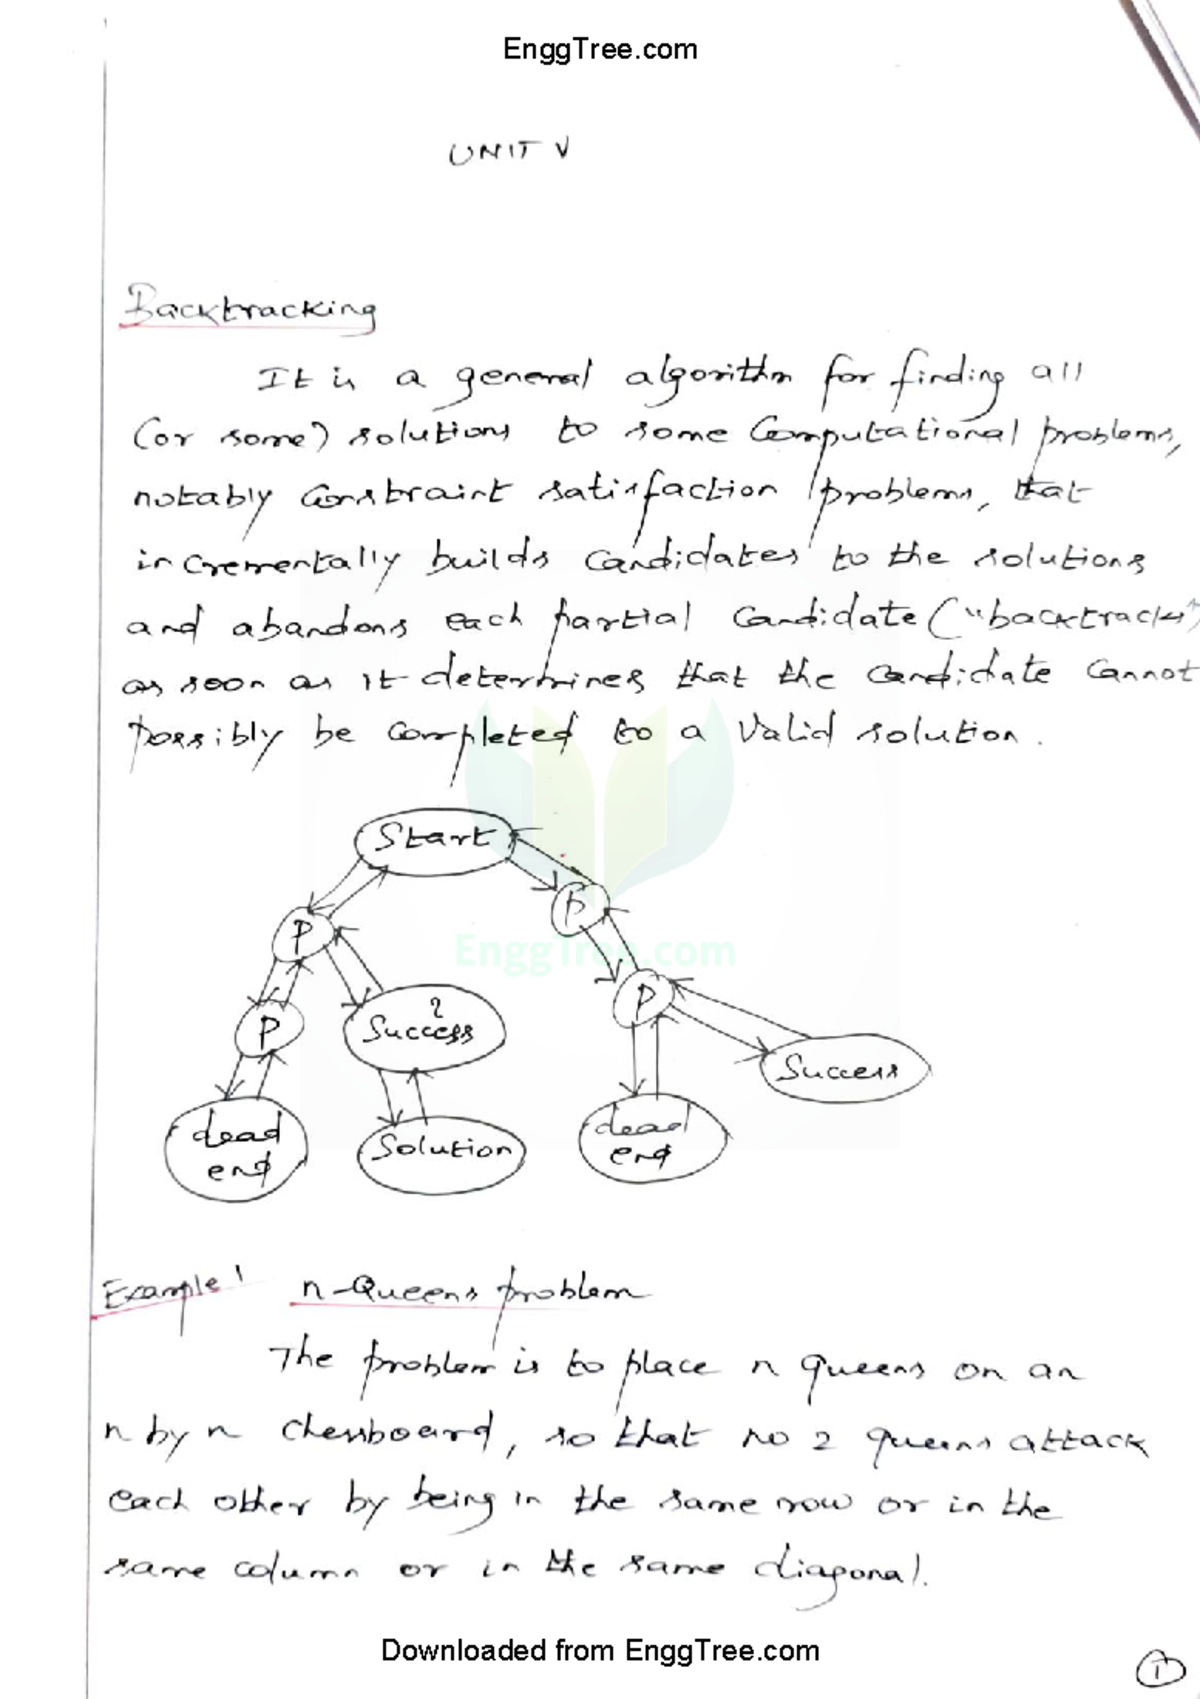 EnggTree.com
UNIT V
Backtracking
It is a general algorithm for finding all
(or some) solutions to some computational problems,
notably constraint satisfaction problems, that
incrementally builds candidates to the solutions
and abandons each partial candidate ("backtracks")
as soon as it determines that the candidate cannot
possibly be completed to a valid solution.
Start
P
P
EnggTree.com
P
P
?
Success
Success
dead
end
Solution
dead
end
Example 1 n-Queens problem
The problem is to place n queens on an
n by n chessboard, so that no 2 queens attack
each other by being in the same row or in the
same column or in the same diagonal.
Downloaded from EnggTree.com
1